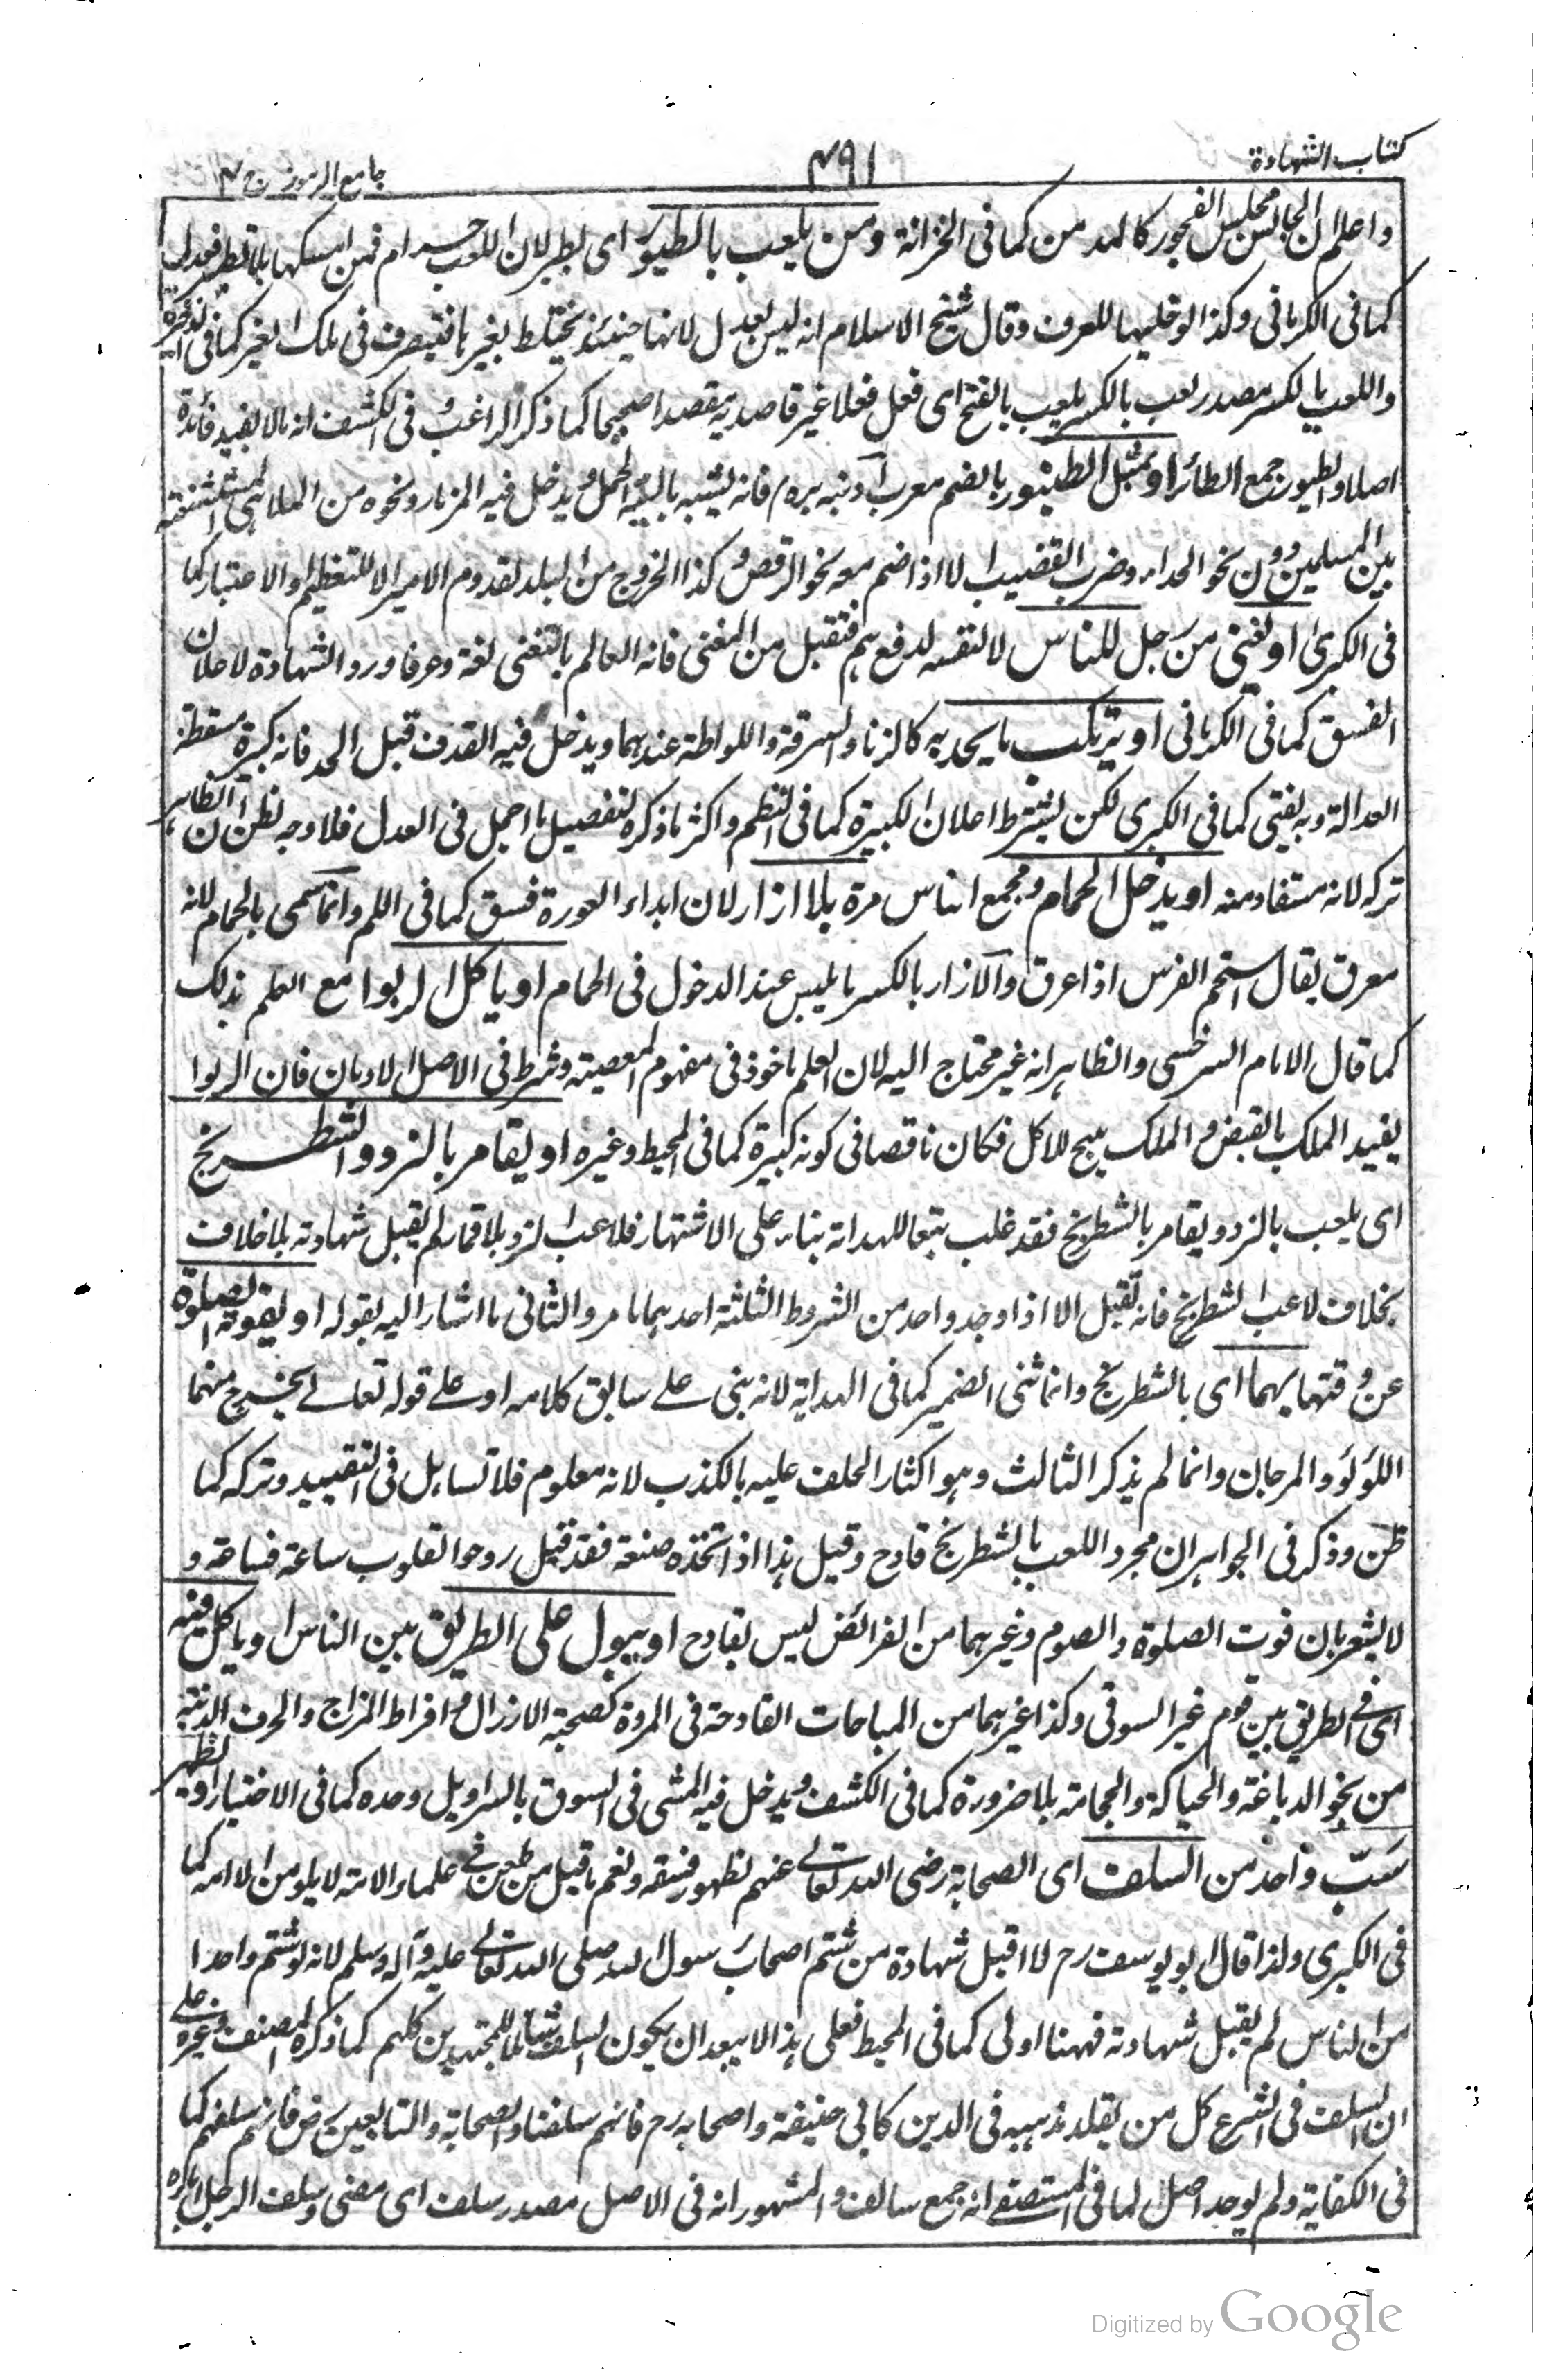 كتاب الشهادة
٤٩١
جامع الرموز ج ٤
واعلم ان الجالس مجلس الفجور كالمدمن كما فى الخزانة ومن يلعب بالطيور اى يطير لان اللعب حرام فمن امسكها بلا تطير فعدل
كما فى الكرمانى وكذا لو خليها للعرف وقال شيخ الاسلام انه ليس بعدل لانها حينئذ يختلط بغيرها فتيصرف فى ملك الغير كما فى الذخيرة
واللعب بالكسر مصدر لعب بالكسر يلعب بالفتح اى فعل فعلا غير قاصد به مقصدا صحيحا كما ذكر الراغب وفى الكشف انه مالا يفيد فائدة
اصلا والطيور جمع الطائر او مثل الطنبور بالضم معرب دنبه بره فانه يشبه بالية الحمل ويدخل فيه المزمار ونحوه من الملاهى المستشنعة
بين المسلمين دون نحو الحداء وضرب القضيب الا اذا ضم معه نحو الرقص وكذا الخروج من البلد لقدوم الامير الا للتعظيم او الاعتبار كما
فى الكبرى او يغنى من رجل للناس لا لنفسه لدفع هم فتقبل من المغنى فانه العالم بالتغنى لغة وعرفا ورد الشهادة لاعلان
الفسق كما فى الكرمانى او يرتكب ما يحد به كالزنا والسرقة واللواطة عندهما ويدخل فيه القذف قبل الحد فانه كبيرة مسقطة
العدالة وبه يفتى كما فى الكبرى لكن يشترط اعلان الكبيرة كما فى النظم واكثر ما ذكره تفصيل ما اجمل فى العدل فلا وجه لظن ان الظاهر
تركه لانه مستفاد منه او يدخل الحمام ومجمع الناس مرة بلا ازار لان ابداء العورة فسق كما فى اللم وانما سمى بالحمام لانه
معرق يقال استحم الفرس اذا عرق والازار بالكسر ما يلبس عند الدخول فى الحمام او ياكل الربوا مع العلم بذلك
كما قال الامام السرخسى والظاهر انه غير محتاج اليه لان العلم ماخوذ فى مفهوم المعصية وشرط فى الاصل الادمان فان الربوا
يفيد الملك بالقبض والملك يبيح للاكل فكان ناقصا فى كونه كبيرة كما فى المحيط وغيره او يقامر بالنرد والشطرنج
اى يلعب بالنرد ويقامر بالشطرنج فقد غلب تبعا للهداية بناء على الاشتهار فلاعب النرد بلا قمار لم يقبل شهادته بلا خلاف
بخلاف لاعب الشطرنج فانه تقبل الا اذا وجد واحد من الشروط الثلثة احدهما ما مر والثانى ما اشار اليه بقوله او يفوته الصلوة
عن وقتها بهما اى بالشطرنج وانما ثنى الضمير كما فى الهداية لانه بنى على سابق كلامه او على قوله تعالى يخرج منهما
اللؤلؤ والمرجان وانما لم يذكر الثالث وهو اكثار الحلف عليه بالكذب لانه معلوم فلا تساهل فى التقييد وتركه كما
ظن وذكر فى الجواهر ان مجرد اللعب بالشطرنج قادح وقيل هذا اذا اتخذه صنعة فقد قيل روحوا القلوب ساعة فساعة و
لا يشعر بان فوت الصلوة والصوم وغيرهما من الفرائض ليس بقادح او يبول على الطريق بين الناس او ياكل فيه
اى فى الطريق بين قوم غير السوقى وكذا غيرهما من المباحات القادحة فى المروة كصحبة الارزال وافراط المزاح والحرف الدنية
من نحو الدباغة والحياكة والحجامة بلا ضرورة كما فى الكشف ويدخل فيه المشى فى السوق بالسراويل وحده كما فى الاختيار او يظهر
سَبّ واحد من السلف اى الصحابة رضى الله تعالى عنهم لظهور فسقه ونعم ما قيل من طعن فى علماء الامة لا يلومن الا امه كما
فى الكبرى ولذا قال ابو يوسف رح لا اقبل شهادة من شتم اصحاب رسول الله صلى الله تعالى عليه وآله وسلم لانه لو شتم واحدا
من الناس لم يقبل شهادته فههنا اولى كما فى المحيط فعلى هذا لا يبعد ان يكون السلف شاملا للمجتهدين كلهم كما ذكره المصنف وغيره على
ان السلف فى الشرع كل من يقلد مذهبه فى الدين كابى حنيفة واصحابه رح فانهم سلفنا والصحابة والتابعين رض فانهم سلفهم كما
فى الكفاية ولم يوجد اصل لما فى المستصفى انه جمع سالف والمشهور انه فى الاصل مصدر سلف اى مضى وسلف الرجل اباؤه
Digitized by Google